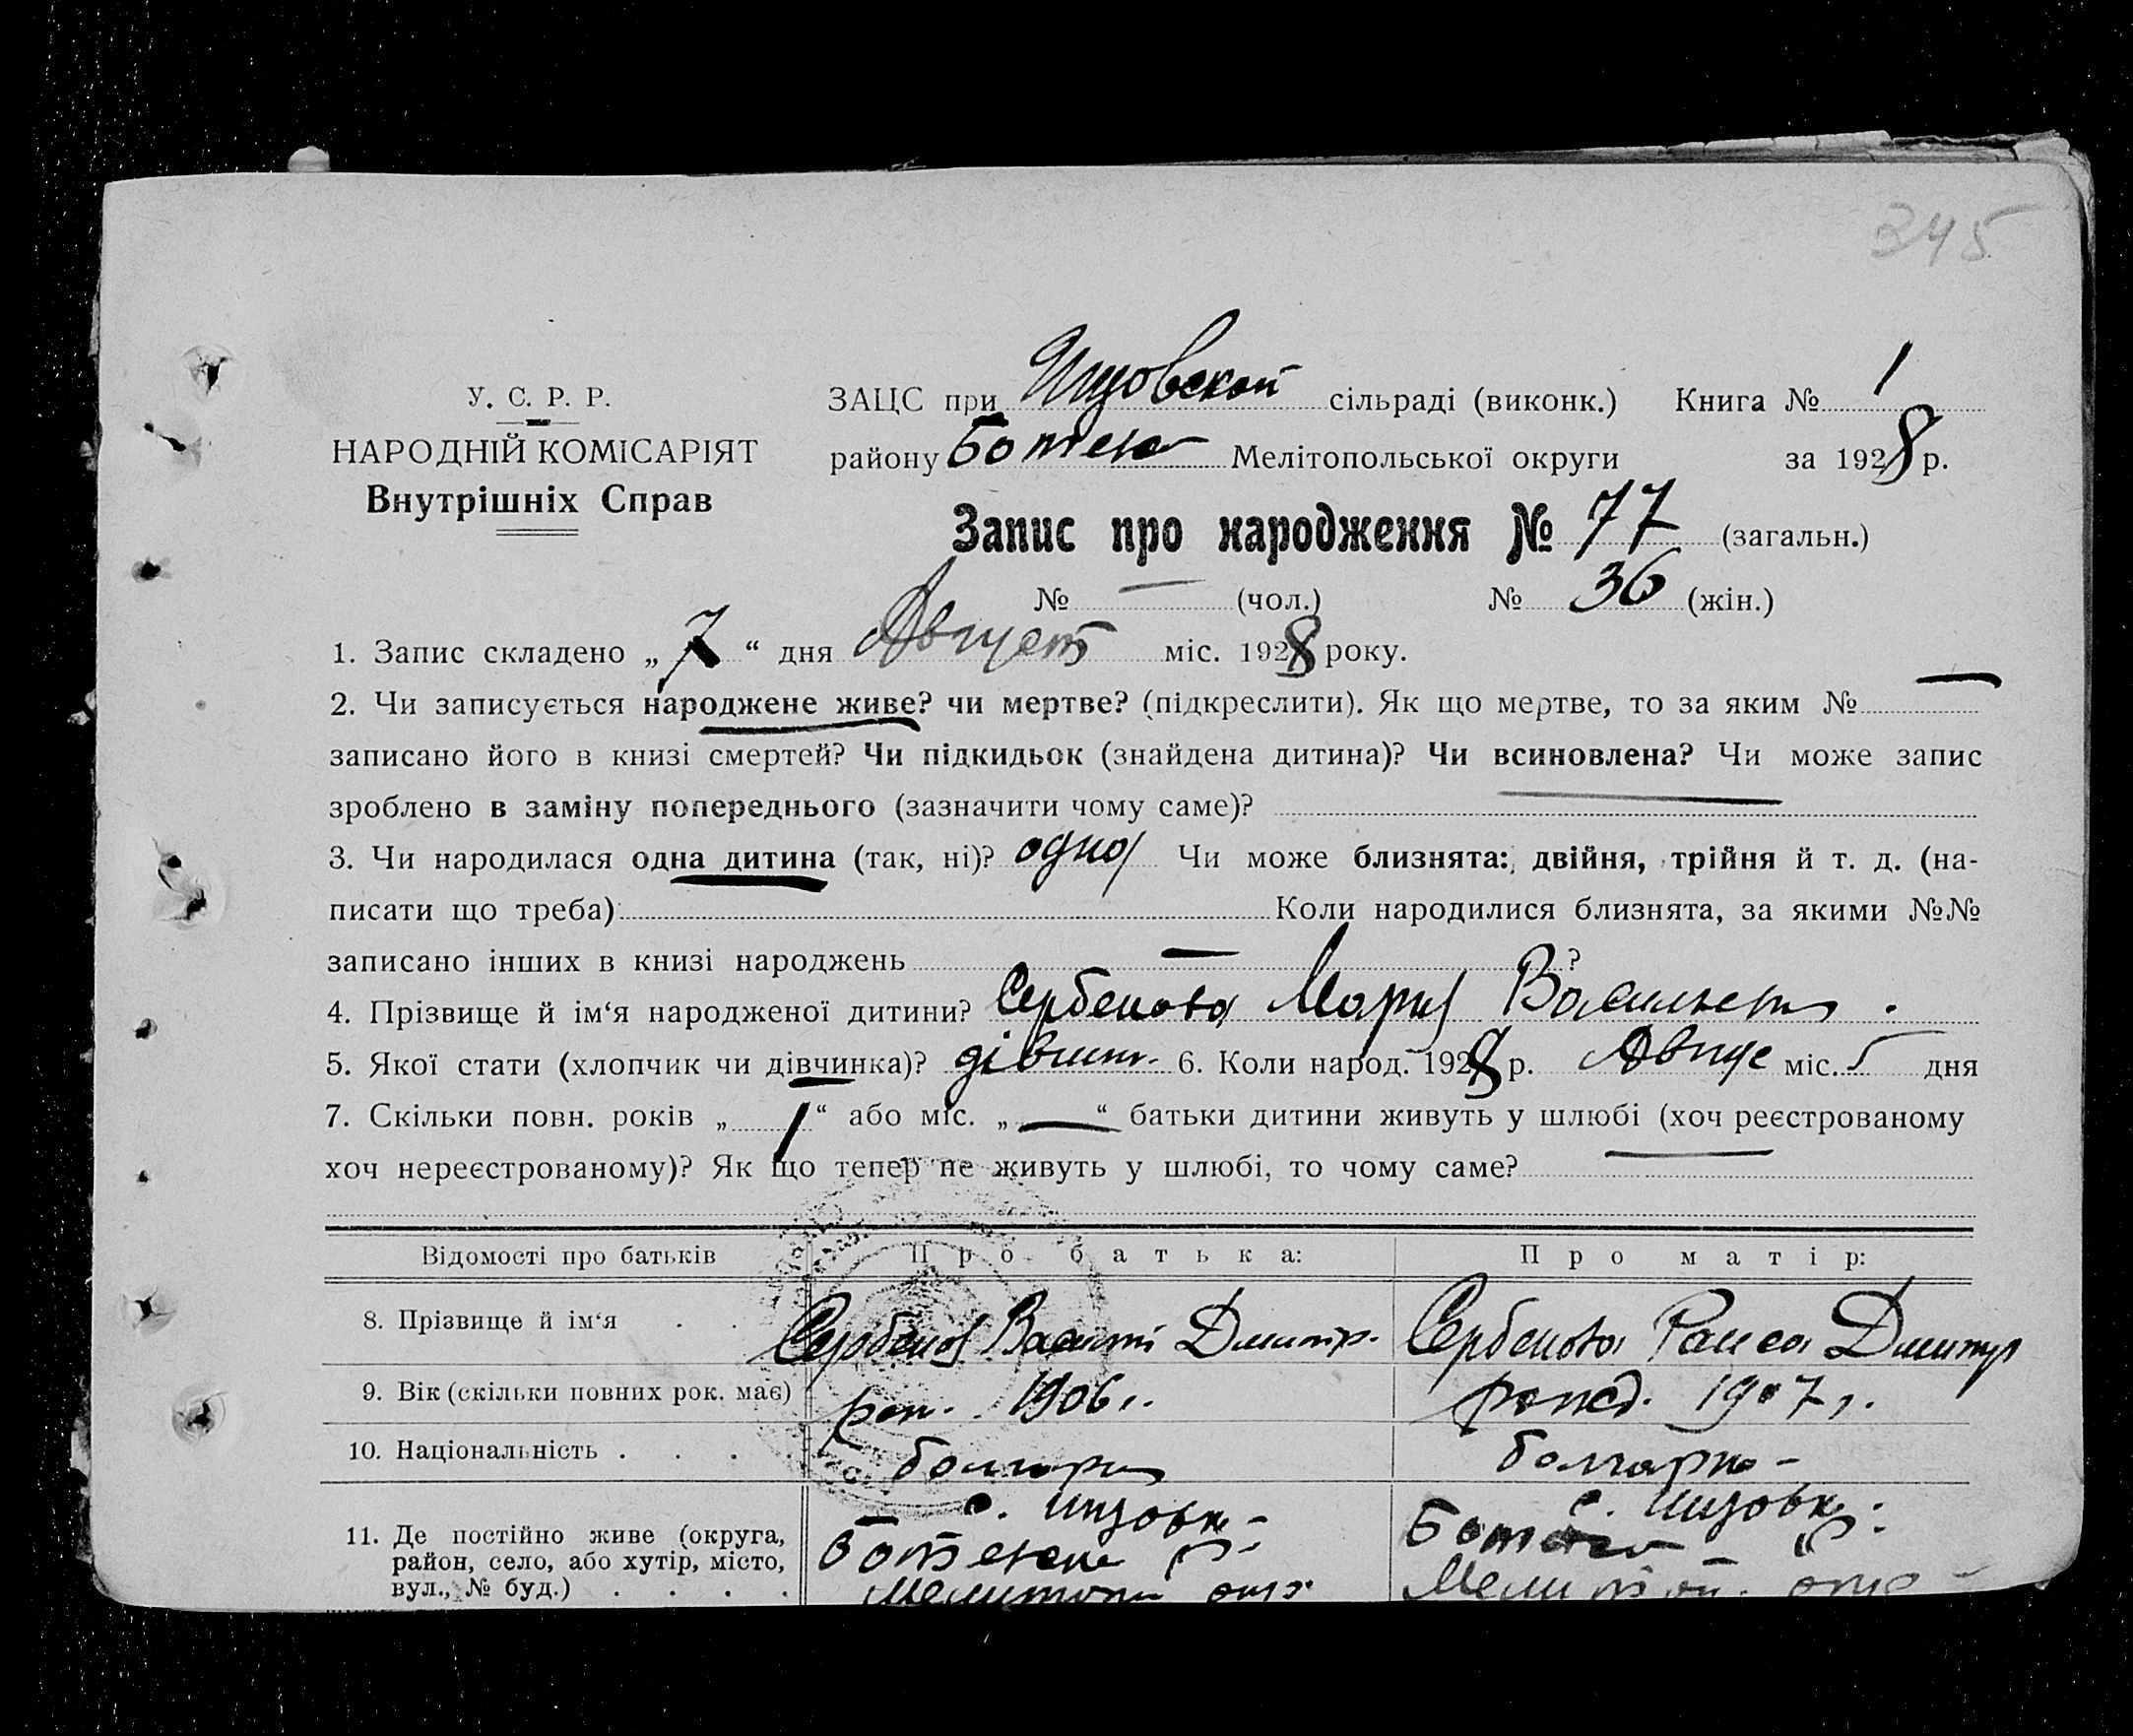 345
У. С. Р. Р.
НАРОДНІЙ КОМІСАРІЯТ
Внутрішніх Справ
ЗАЦС при сільраді (виконк.) Книга № 1
району Ботев Мелітопольської округи за 1928 р.
Запис про народження № 77 (загальн.)
№ — (чол.) № 36 (жін.)
1. Запис складено „ 7 “ дня Август міс. 1928 року.
2. Чи записується народжене живе? чи мертве? (підкреслити). Як що мертве, то за яким № —
записано його в книзі смертей? Чи підкидьок (знайдена дитина)? Чи всиновлена? Чи може запис
зроблено в заміну попереднього (зазначити чому саме)?
3. Чи народилася одна дитина (так, ні)? одно Чи може близнята: двійня, трійня й т. д. (на-
писати що треба) Коли народилися близнята, за якими №№
записано інших в книзі народжень — ?
4. Прізвище й ім‘я народженої дитини? Сербенова Мария Васильев
5. Якої стати (хлопчик чи дівчинка)? дівчин. 6. Коли народ. 1928 р. Авгус міс. 5 дня
7. Скільки повн. років „ 1 “ або міс. „ — “ батьки дитини живуть у шлюбі (хоч реєстрованому
хоч нереєстрованому)? Як що тепер не живуть у шлюбі, то чому саме?
Відомості про батьків Про батька: Про матір:
8. Прізвище й ім‘я . . Сербенов Василий Димитр. Сербенова Раиса Димитр
9. Вік (скільки повних рок. має) 1906 г. рожд. 1907 г.
10. Національність . . . болгарин болгарка
11. Де постійно живе (округа,
район, село, або хутір, місто,
вул., № буд.) . . . .
с.
р.
Мелитопол окр
с.
р.
Мелитоп. окр